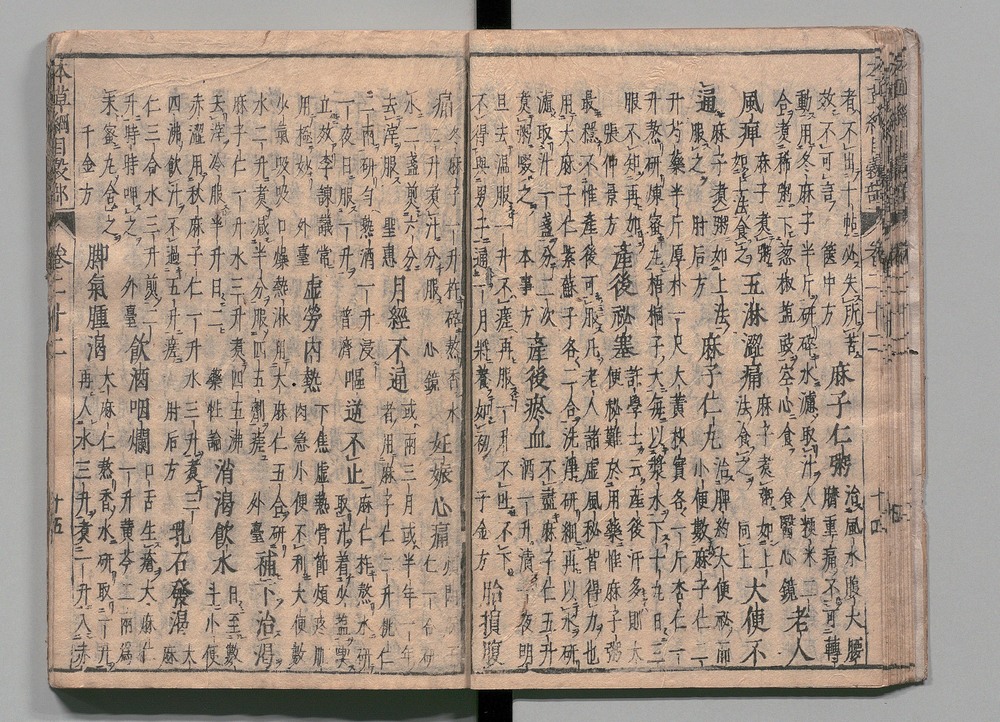 者不出十帖必失所苦
效不可言 篋中方
麻子仁粥
治風水腹大腰
臍重痛不可轉
動用冬麻子半斤研碎水濾取汁入粳米二
合煮稀粥下葱椒薑豉空心食 食醫心鏡
老人
風痺
麻子煮粥
如上法食之
五淋澀痛
麻子煮粥如上
法食之 同上
大便不
通
麻子煮粥如上法
服之 肘后方
麻子仁丸
治脾約大便秘而
小便數麻子仁二
升芍藥半斤厚朴一尺大黃枳實各一斤杏仁一
升熬研煉蜜丸梧桐子大每以漿水下十丸日三
服不知再加
張仲景方
產後秘塞
許學士云產後汗多則大
便秘難於用藥惟麻子粥
最穩不惟產後可服凡老人諸虛風秘皆得力也
用大麻子仁紫蘇子各二合洗淨研細再以水研
濾取汁一盞分二次
煮粥啜之 本事方
產後瘀血
不盡麻子仁五升
酒一升漬一夜明
旦去滓溫服一升不瘥再服一升不吐不下
不得與男子通一月將養如初 千金方
胎損腹
痛
冬麻子一升杵碎熬香水
二升煮汁分服 心鏡
妊娠心痛
煩悶麻子仁一合研
水二盞煎六分
去滓服 聖惠
月經不通
或兩三月或半年一年
者用麻子仁二升桃仁
二兩研勻熱酒一升浸
一夜日服一升 普濟
嘔逆不止
麻仁杵熬水研
取汁着少鹽喫
立效李諫議常
用極妙 外臺
虛勞內熱
下焦虛熱骨節煩疼肌
肉急小便不利大便數
少氣吸吸口燥熱淋用大麻仁五合研
水二升煮減半分服四五劑瘥 外臺
補下治渴
麻子仁一升水三升煮四五沸
去滓冷服半升日二 藥性論
消渴飲水
日至數
斗小便
赤澀用秋麻子仁一升水三升煮三
四沸飲汁不過五升瘥 肘后方
乳石發渴
大
麻
仁三合水三升煎二
升時時呷之 外臺
飲酒咽爛
口舌生瘡大麻仁
一升黃芩二兩爲
末蜜丸含之
千金方
脚氣腫渴
大麻仁熬香水研取一升
再入水三升煮一升入赤
本草綱目穀部 卷二十二 十五